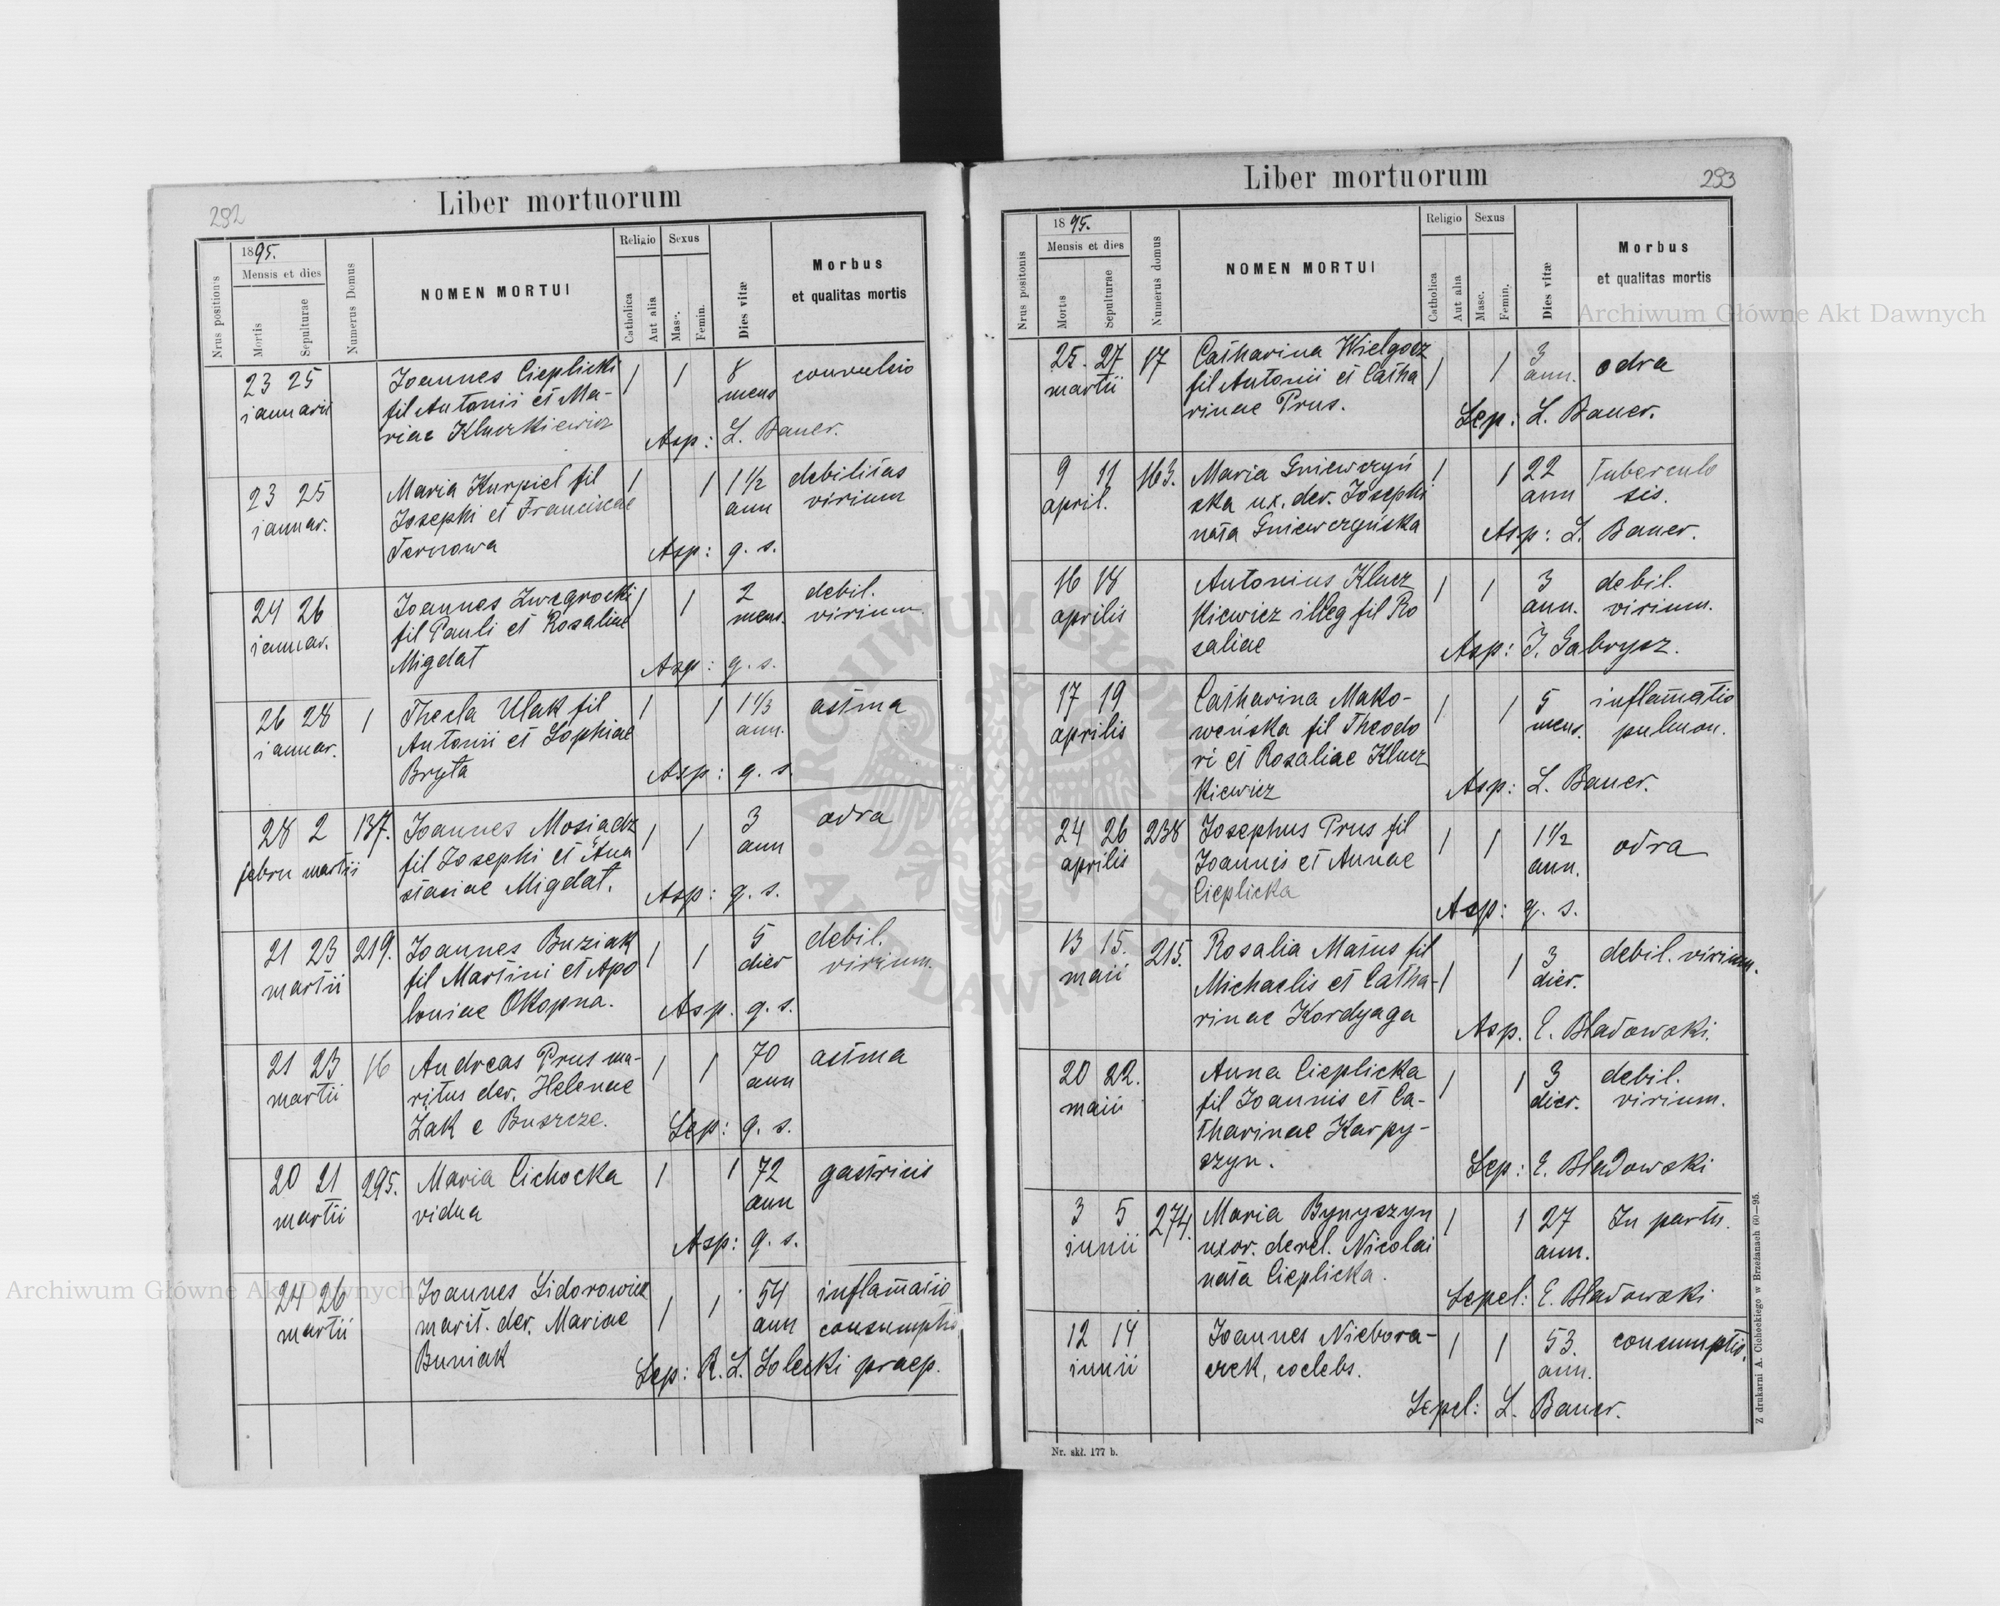 292
Liber mortuorum
Nrus positionis
1895.
Mensis et dies
Mortis
Sepulturae
Numerus Domus
NOMEN MORTUI
Religio
Catholica
Aut alia
Sexus
Masc.
Femin.
Dies vitæ
Morbus
et qualitas mortis
23 25 Joannes Cieplicki 1 1 8 convulsio
januarii fil Antonii et Ma- mens
riae Kluczkiewicz Asp: L. Bauer.
23 25 Maria Kurpiel fil 1 1 1½ debilitas
januar. Josephi et Franciscae ann virium
Ternowa Asp: q. s.
24 26 Joannes Zwegrocki 1 1 2 debil.
januar. fil Pauli et Rosaliae mens. virium.
Migdat Asp: q. s.
26 28 1 Thecla Ulak fil 1 1 1⅓ astma
januar. Antonii et Sophiae ann.
Bryta Asp: q. s.
28 2 137. Joannes Mosiadz 1 1 3 odra
febru martii fil Josephi et Ana ann
stasiae Migdat. Asp: q. s.
21 23 219. Joannes Buziak 1 1 5 debil.
martii fil Martini et Apo dier virium.
loniae Okopna. Asp. q. s.
21 23 16 Andreas Prus ma- 1 1 70 astma
martii ritus der. Helenae ann
Zak e Buszcze. Sep: q. s.
20 21 295. Maria Cichocka 1 1 72 gastricis
martii vidua ann
Asp: q. s.
24 26 Joannes Sidorowicz 1 1 54 inflamatio
martii marit. der. Mariae ann consumptio
Buniak Sep: R. L. Solecki praep.
293
Liber mortuorum
Nrus positonis
1895.
Mensis et dies
Mortis
Sepulturae
Numerus domus
NOMEN MORTUI
Religio
Catholica
Aut alia
Sexus
Masc.
Femin.
Dies vitæ
Morbus
et qualitas mortis
25. 27 17 Catharina Wielgocz 1 1 3 odra
martii fil Antonii et Catha ann.
rinae Prus. Sep: L. Bauer.
9 11 163. Maria Gniewczyń 1 1 22 Tuberculo
april. ska ux. der. Josephi ann sis.
nata Gniewczyńska Asp: L. Bauer.
16 18 Antonius Klucz 1 1 3 debil.
aprilis kiewicz illeg fil Ro ann. virium.
saliae Asp: J. Gabrysz.
17 19 Catharina Mako- 1 1 5 inflamatio
aprilis weńska fil Theodo mens. pulmon.
ri et Rosaliae Klucz
kiewicz Asp: L. Bauer.
24 26 238 Josephus Prus fil 1 1 1½ odra
aprilis Joannis et Annae ann.
Cieplicka Asp: q. s.
13 15. 215. Rosalia Matus fil 1 1 3 debil. virium.
maii Michaelis et Catha- dier.
rinae Kordyaga Asp. E. Bładowski.
20 22. Anna Cieplicka 1 1 3 debil.
maii fil Joannis et Ca- dier. virium.
tharinae Karpy-
szyn. Sep: E. Bładowski
3 5 274. Maria Bynyszyn 1 1 27 In partu.
iunii uxor. derel. Nicolai ann.
nata Cieplicka. Sepel: E. Bładowski
12 14 Joannes Niebora- 1 1 53. consumptio.
iunii czek, coelebs. ann.
Sepel: L. Bauer.
Nr. skł. 177 b.
Z drukarni A. Cichockiego w Brzeżanach 60—95.
Archiwum Główne Akt Dawnych
Archiwum Główne Akt Dawnych
ARCHIWUM GŁÓWNE AKT DAWNYCH